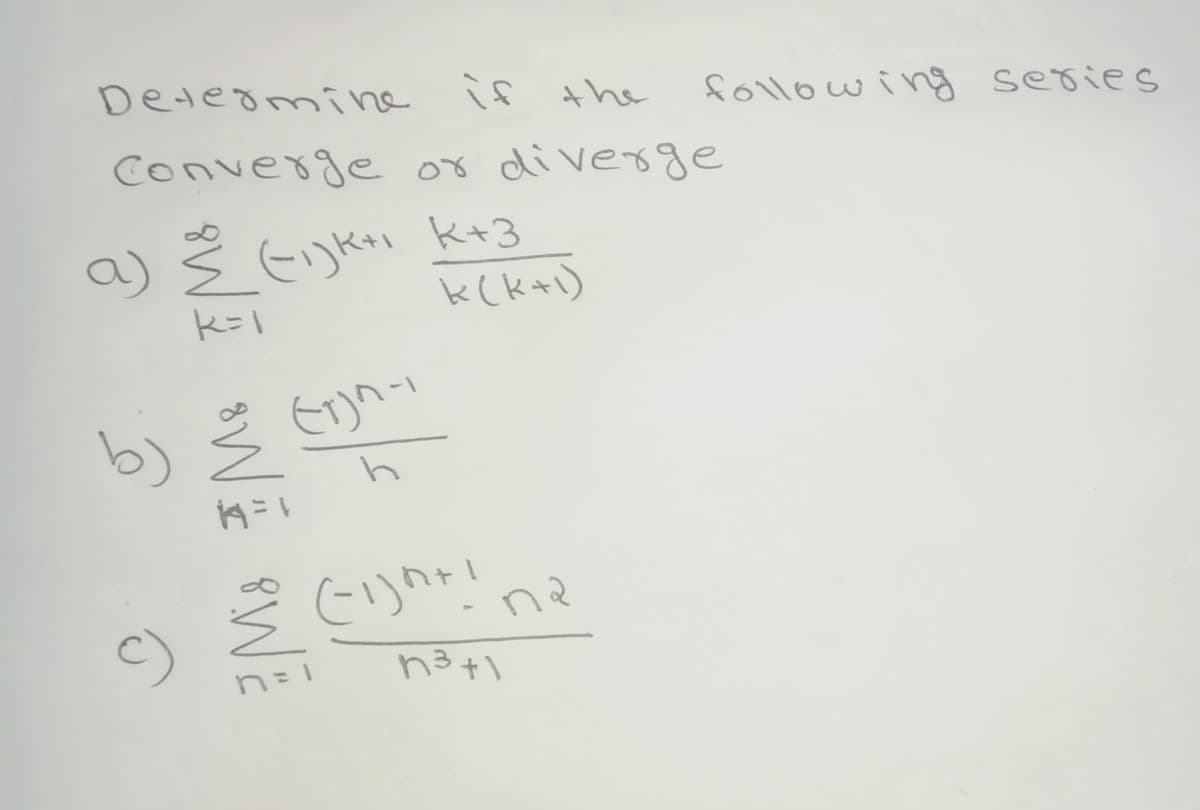 Determine if the following series
Converge or diverge
a) ∞ Σ k=1 (-1)^{k+1} \frac{k+3}{k(k+1)}
b) ∞ Σ n=1 \frac{(-1)^{n-1}}{n}
c) ∞ Σ n=1 \frac{(-1)^{n+1} · n^2}{n^3+1}